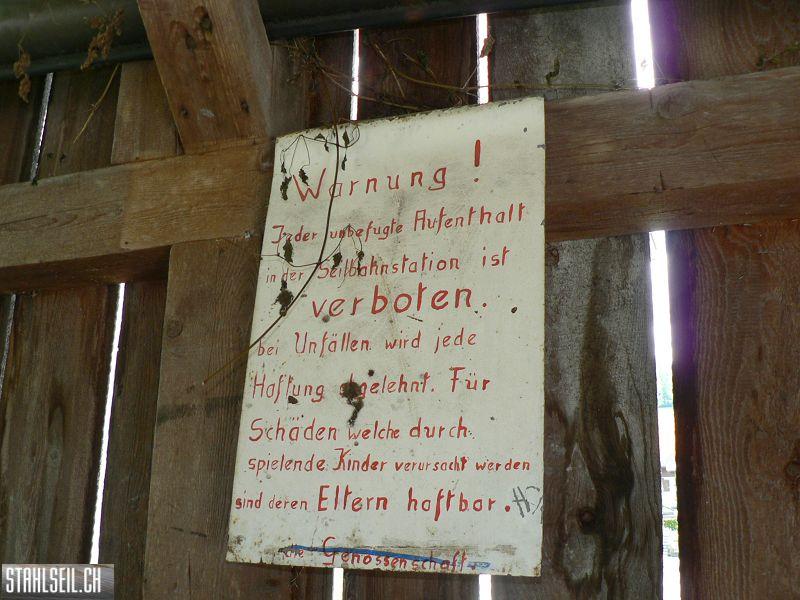 Warnung!
Jeder unbefugte Aufenthalt
in der Seilbahnstation ist
verboten.
bei Unfällen wird jede
Haftung abgelehnt. Für
Schäden welche durch
spielende Kinder verursacht werden
sind deren Eltern haftbar.
die Genossenschaft.
STAHLSEIL.CH